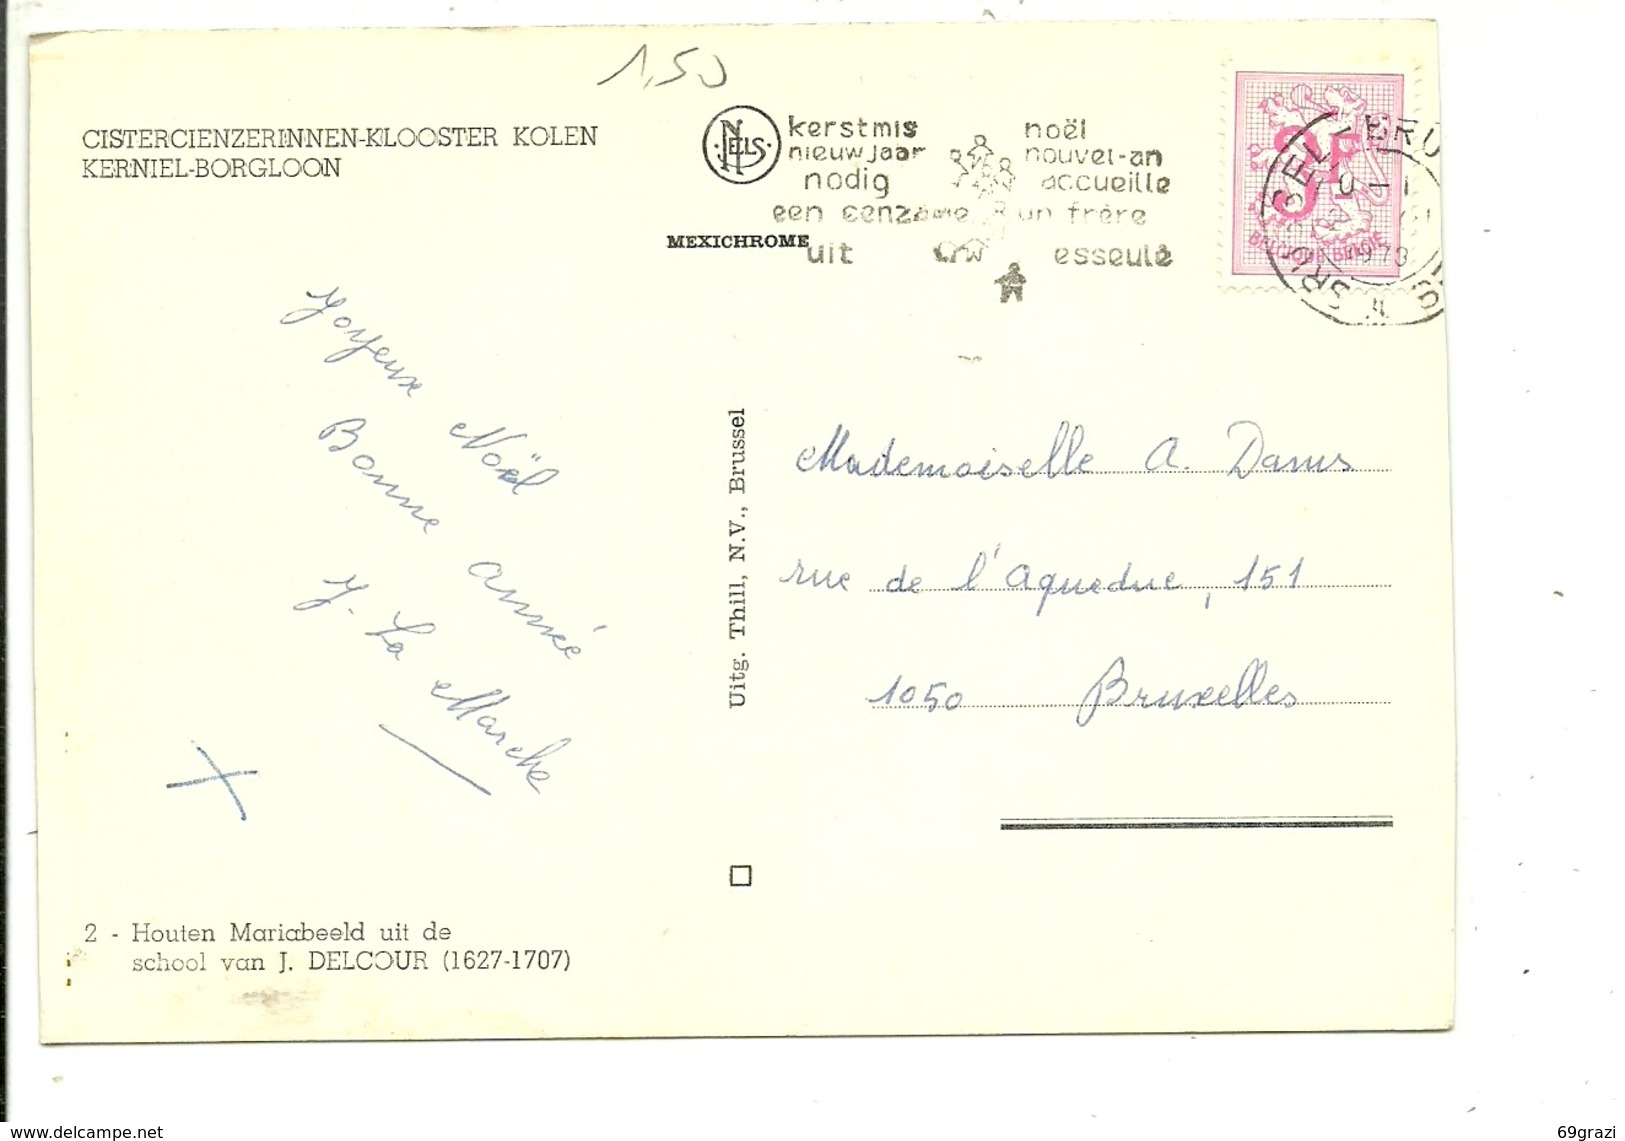 1,50
CISTERCIENZERINNEN-KLOOSTER KOLEN
KERNIEL-BORGLOON
NELS
MEXICHROME
kerstmis
nieuwjaar
nodig
een eenzame
uit
noël
nouvel-an
accueille
un frère
esseulé
3F
BELGIQUE-BELGIË
BRUSSEL
1973
Joyeux Noël
Bonne Année
Y. La Marche
Uitg. Thill, N.V., Brussel
Mademoiselle A. Danus
rue de l'Aqueduc, 151
1050 Bruxelles
2 - Houten Mariabeeld uit de
school van J. DELCOUR (1627-1707)
www.delcampe.net
69grazi